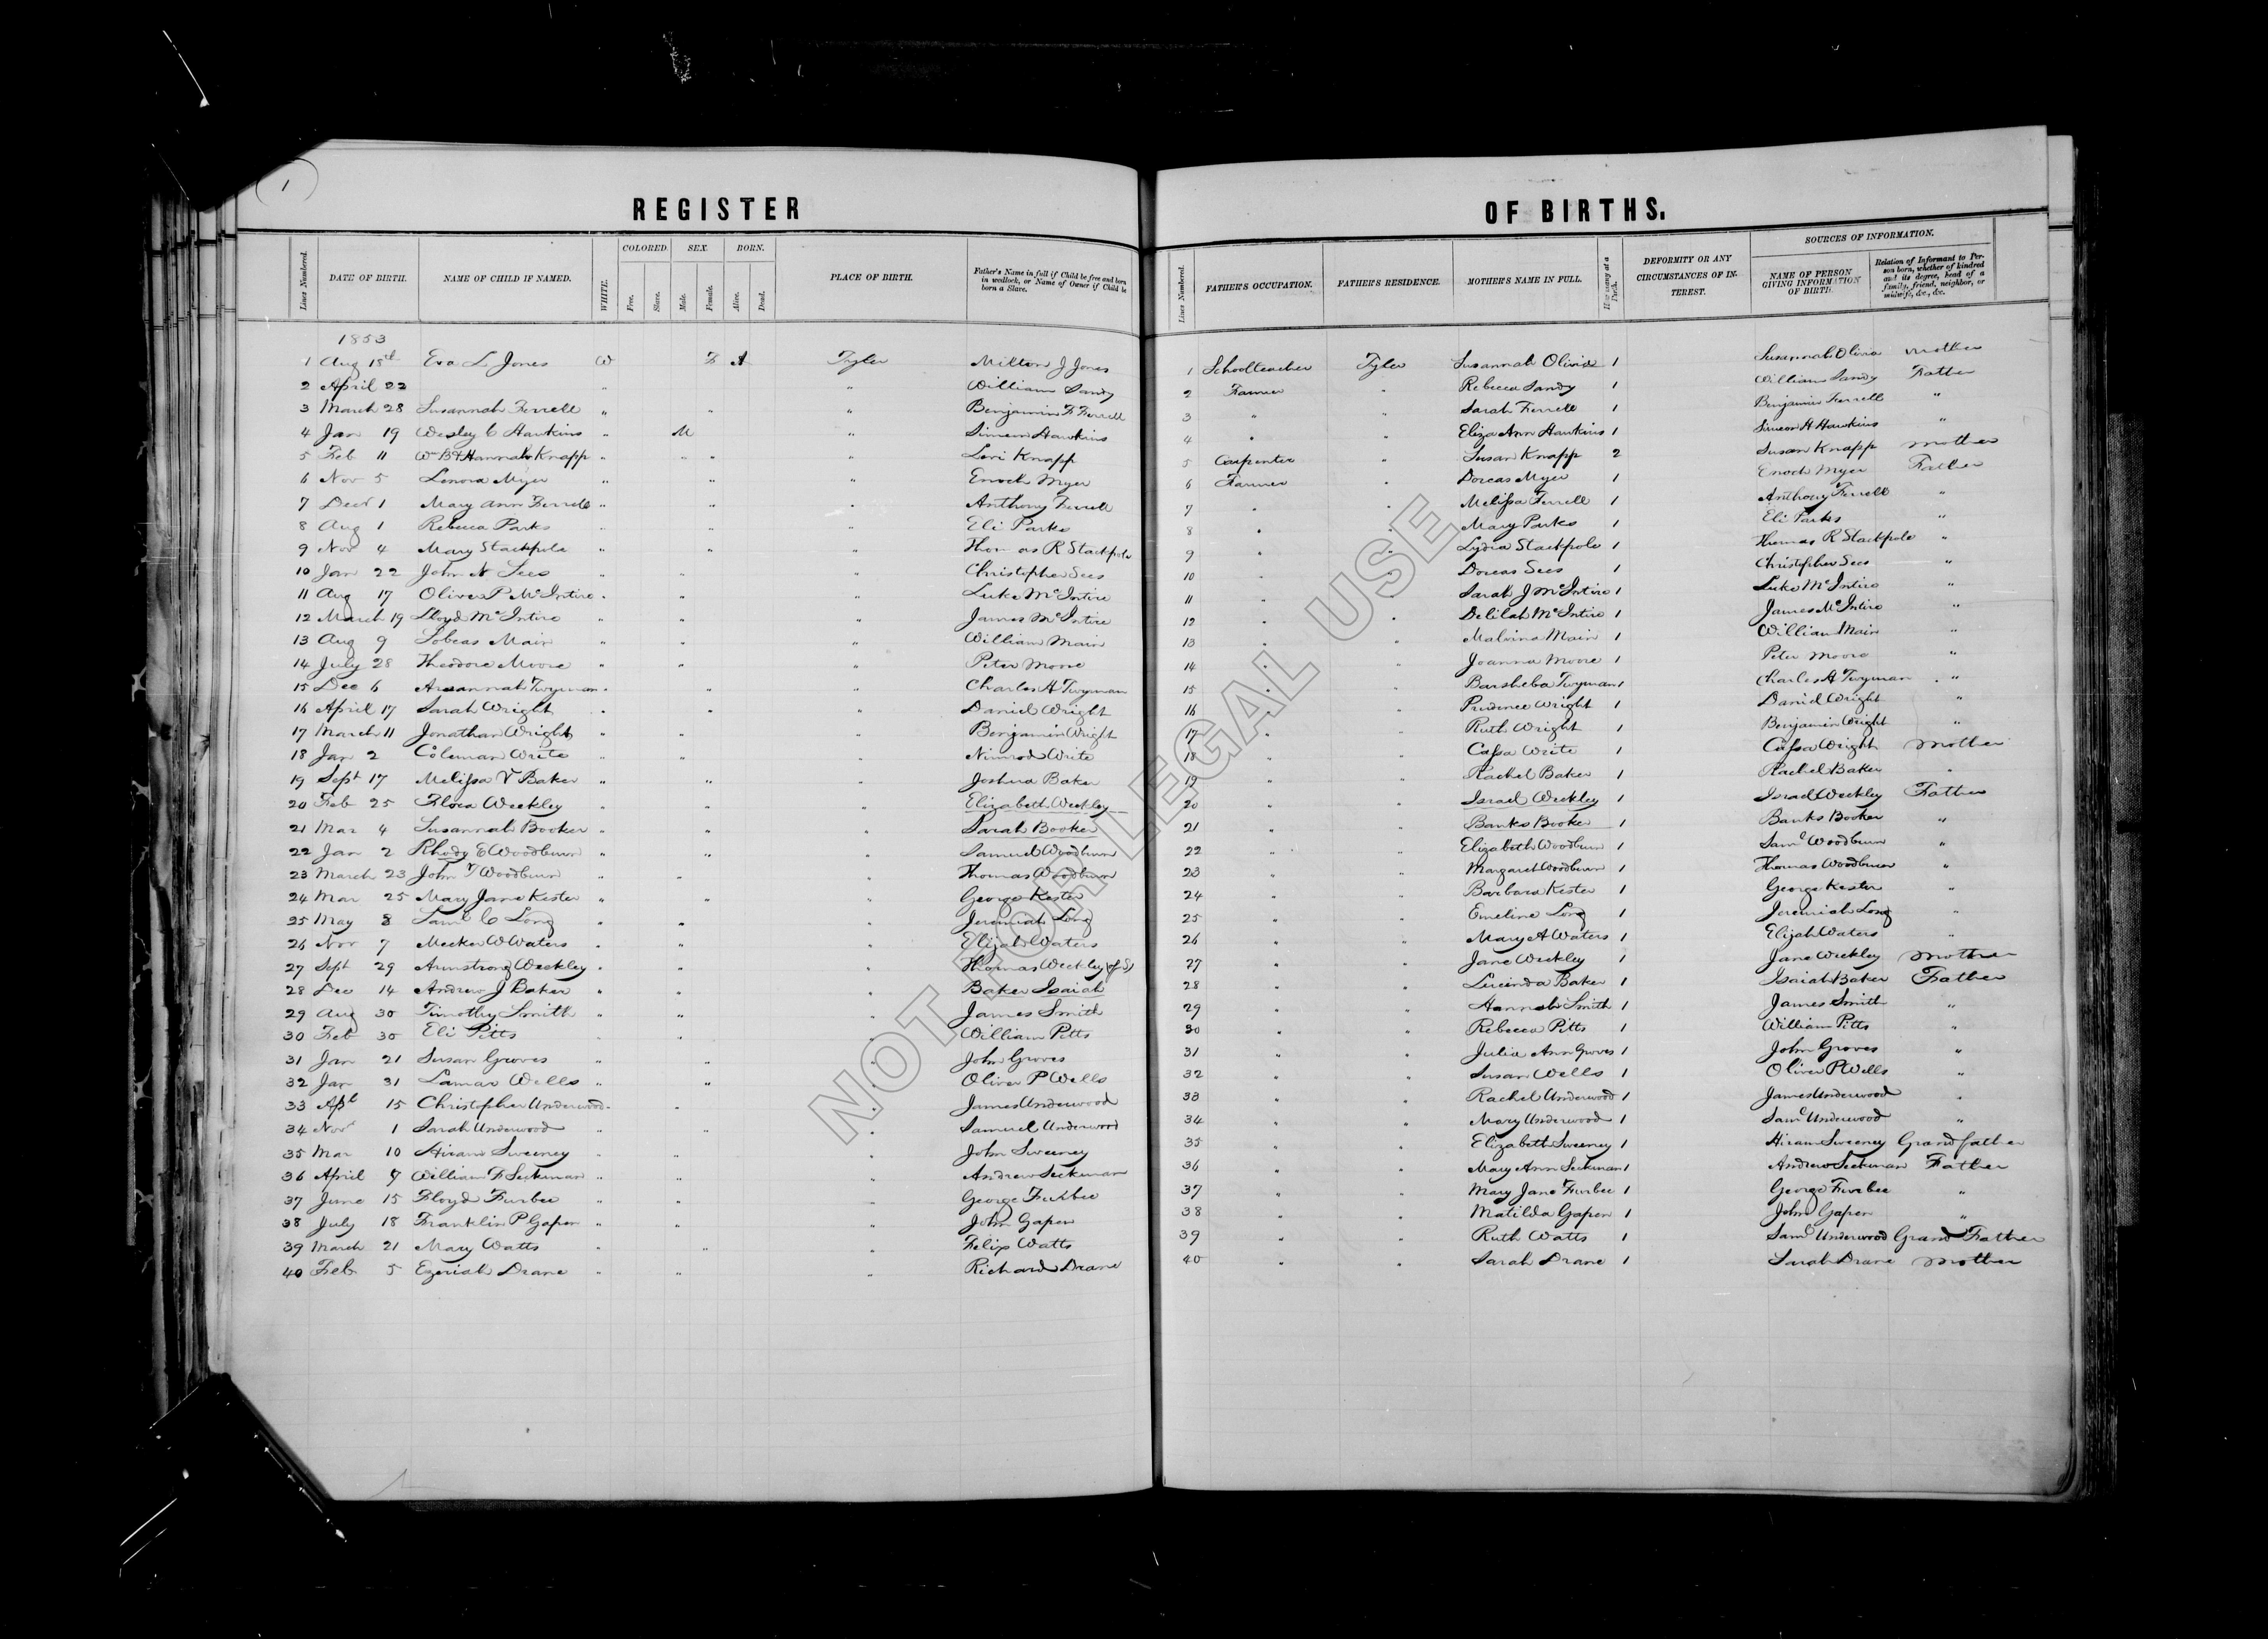 1
REGISTER OF BIRTHS.
Lines Numbered. DATE OF BIRTH. NAME OF CHILD IF NAMED. WHITE. COLORED. Free. Slave. SEX. Male. Female. BORN. Alive. Dead. PLACE OF BIRTH. Father's Name in full if Child be free and born in wedlock, or Name of Owner if Child be born a Slave. Lines Numbered. FATHER'S OCCUPATION. FATHER'S RESIDENCE. MOTHER'S NAME IN FULL. How many at a Birth. DEFORMITY OR ANY CIRCUMSTANCES OF INTEREST. SOURCES OF INFORMATION. NAME OF PERSON GIVING INFORMATION OF BIRTH. Relation of Informant to Person born, whether of kindred and its degree, head of a family, friend, neighbor, or midwife, &c., &c.
1853
1 Aug 18th Eva L Jones W F A Tyler Milton J Jones 1 Schoolteacher Tyler Susannah Olivia 1 Susannah Olivia Mother
2 April 22 " William Sandy 2 Farmer " Rebecca Sandy 1 William Sandy Father
3 March 28 Susannah Ferrell " " " Benjamin F Ferrell 3 " " Sarah Ferrell 1 Benjamin Ferrell "
4 Jan 19 Wesley C Hawkins " M " Simeon Hawkins 4 " " Eliza Ann Hawkins 1 Simeon H Hawkins "
5 Feb 11 Wm B & Hannah Knapp " " " Levi Knapp 5 Carpenter " Susan Knapp 2 Susan Knapp Mother
6 Nov 5 Lenora Myer " " " Enoch Myer 6 Farmer " Dorcas Myer 1 Enoch Myer Father
7 Decr 1 Mary Ann Ferrell " " " Anthony Ferrell 7 " " Melissa Ferrell 1 Anthony Ferrell "
8 Aug 1 Rebecca Parks " " " Eli Parks 8 " " Mary Parks 1 Eli Parks "
9 Nov 4 Mary Stackpole " " " Thomas R Stackpole 9 " " Lydia Stackpole 1 Thomas R Stackpole "
10 Jan 22 John N Sees " " " Christopher Sees 10 " " Dorcas Sees 1 Christopher Sees "
11 Aug 17 Oliver P McIntire " " " Luke McIntire 11 " " Sarah J McIntire 1 Luke McIntire "
12 March 19 Lloyd McIntire " " " James McIntire 12 " " Delilah McIntire 1 James McIntire "
13 Aug 9 Main " " " William Main 13 " " Malvina Main 1 William Main "
14 July 28 Theodore Moore " " " Peter Moore 14 " " Joanna Moore 1 Peter Moore "
15 Dec 6 Twyman " " " Charles H Twyman 15 " " Barsheba Twyman 1 Charles H Twyman "
16 April 17 Sarah Wright " " " Daniel Wright 16 " " Prudence Wright 1 Daniel Wright "
17 March 11 Jonathan Wright " " " Benjamin Wright 17 " " Ruth Wright 1 Benjamin Wright "
18 Jan 2 Coleman Write " " " Nimrod Write 18 " " Cassa Write 1 Cassa Wright Mother
19 Sept 17 Melissa V Baker " " " Joshua Baker 19 " " Rachel Baker 1 Rachel Baker "
20 Feb 25 Flora Weekley " " " Elizabeth Weekley 20 " " Israel Weekley 1 Israel Weekley Father
21 Mar 4 Susannah Booker " " " Sarah Booker 21 " " Banks Booker 1 Banks Booker "
22 Jan 2 Rhody E Woodburn " " " Samuel Woodburn 22 " " Elizabeth Woodburn 1 Saml Woodburn "
23 March 23 John T Woodburn " " " Thomas Woodburn 23 " " Margaret Woodburn 1 Thomas Woodburn "
24 Mar 25 Mary Jane Kester " " " George Kester 24 " " Barbara Kester 1 George Kester "
25 May 8 Saml C Long " " " Jeremiah Long 25 " " Emeline Long 1 Jeremiah Long "
26 Nov 7 Meeker W Waters " " " Elijah Waters 26 " " Mary A Waters 1 Elijah Waters "
27 Sept 29 Armstrong Weekley " " " Thomas Weekley (of S) 27 " " Jane Weekley 1 Jane Weekley Mother
28 Dec 14 Andrew J Baker " " " Baker Isaiah 28 " " Lucinda Baker 1 Isaiah Baker Father
29 Aug 30 Timothy Smith " " " James Smith 29 " " Hannah Smith 1 James Smith "
30 Feb 30 Eli Pitts " " " William Pitts 30 " " Rebecca Pitts 1 William Pitts "
31 Jan 21 Susan Groves " " " John Groves 31 " " Julia Ann Groves 1 John Groves "
32 Jan 31 Lamar Wells " " " Oliver P Wells 32 " " Susan Wells 1 Oliver P Wells "
33 Apl 15 Christopher Underwood " " " James Underwood 33 " " Rachel Underwood 1 James Underwood "
34 Nov 1 Sarah Underwood " " " Samuel Underwood 34 " " Mary Underwood 1 Saml Underwood "
35 Mar 10 Hiram Sweeney " " " John Sweeney 35 " " Elizabeth Sweeney 1 Hiram Sweeney Grandfather
36 April 7 William F Seckman " " " Andrew Seckman 36 " " Mary Ann Seckman 1 Andrew Seckman Father
37 June 15 Floyd Furbee " " " George Furbee 37 " " Mary Jane Furbee 1 George Furbee "
38 July 18 Franklin P Gapen " " " John Gapen 38 " " Matilda Gapen 1 John Gapen "
39 March 21 Mary Watts " " " Felix Watts 39 " " Ruth Watts 1 Saml Underwood Grand Father
40 Feb 5 Ezeriah Drane " " " Richard Drane 40 " " Sarah Drane 1 Sarah Drane Mother
NOT FOR LEGAL USE